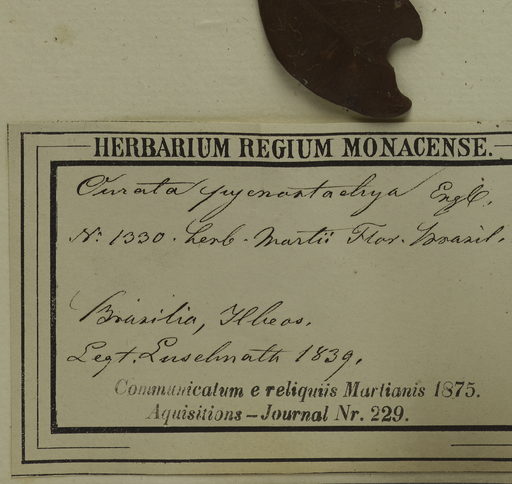 HERBARIUM REGIUM MONACENSE.
Ourata pycnostachya Engl.
No. 1330. herb. Martii Flor. Brazil.
Brasilia, Ilheos.
Legt. Luschnath 1839.
Communicatum e reliquiis Martianis 1875.
Aquisitions - Journal Nr. 229.